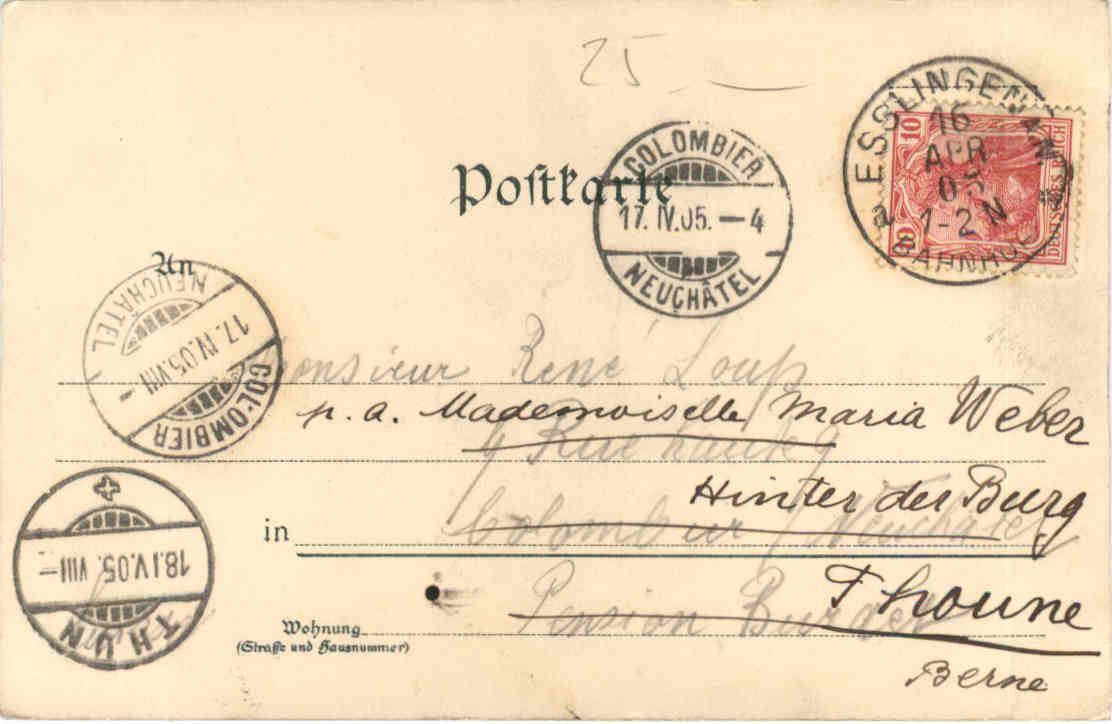 25
ESSLINGEN
16
APR
05
1-2 N
BAHNHOF
10
10
DEUTSCHES REICH
Postkarte
COLOMBIER
17. IV. 05. — 4
NEUCHÂTEL
An
NEUCHÂTEL
17. IV. 05. VIII —
COLOMBIER
Monsieur René Loup
p. a. Mademoiselle Maria Weber
4 Rue
Hinter der Burg
in
Colombier / Neuchâtel
THUN
18. IV. 05. VIII —
Thoune
Pension
Wohnung
(Straße und Hausnummer)
Berne